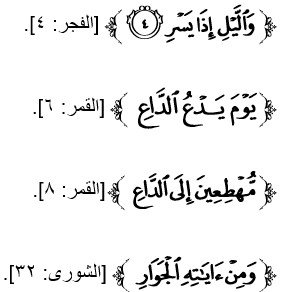 ﴿وَٱلَّيْلِ إِذَا يَسْرِ ٤﴾ [الفجر: ٤].
﴿يَوْمَ يَدْعُ ٱلدَّاعِ﴾ [القمر: ٦].
﴿مُّهْطِعِينَ إِلَى ٱلدَّاعِ﴾ [القمر: ٨].
﴿وَمِنْ ءَايَٰتِهِ ٱلْجَوَارِ﴾ [الشورى: ٣٢].